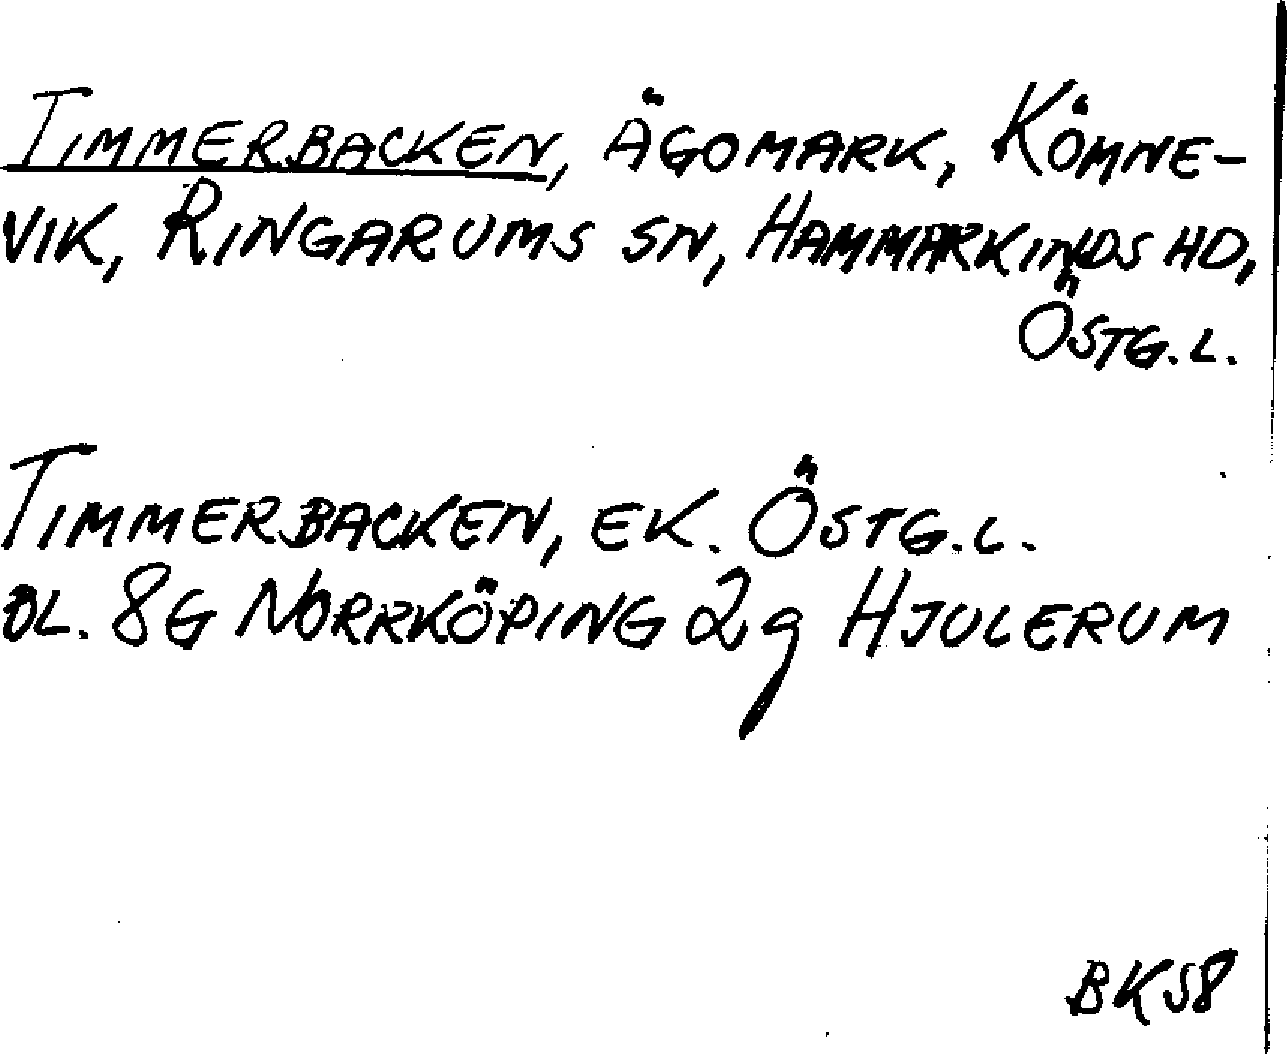 TIMMERBACKEN, ÄGOMARK, KÖMNE-
VIK, RINGARUMS SN, HAMMARKINDS HD,
ÖSTG. L.
TIMMERBACKEN, EK. ÖSTG. L.
BL. 8G NORRKÖPING 2g HJULERUM
BKS8